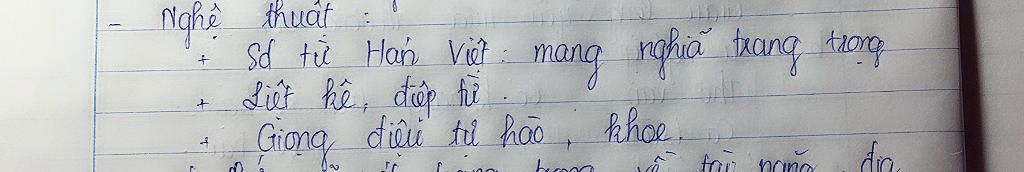 - Nghệ thuật :
+ Sd từ Hán Việt : mang nghĩa trang trọng
+ Liệt kê, điệp từ.
+ Giọng điệu tự hào, khoe.
tài năng, địa